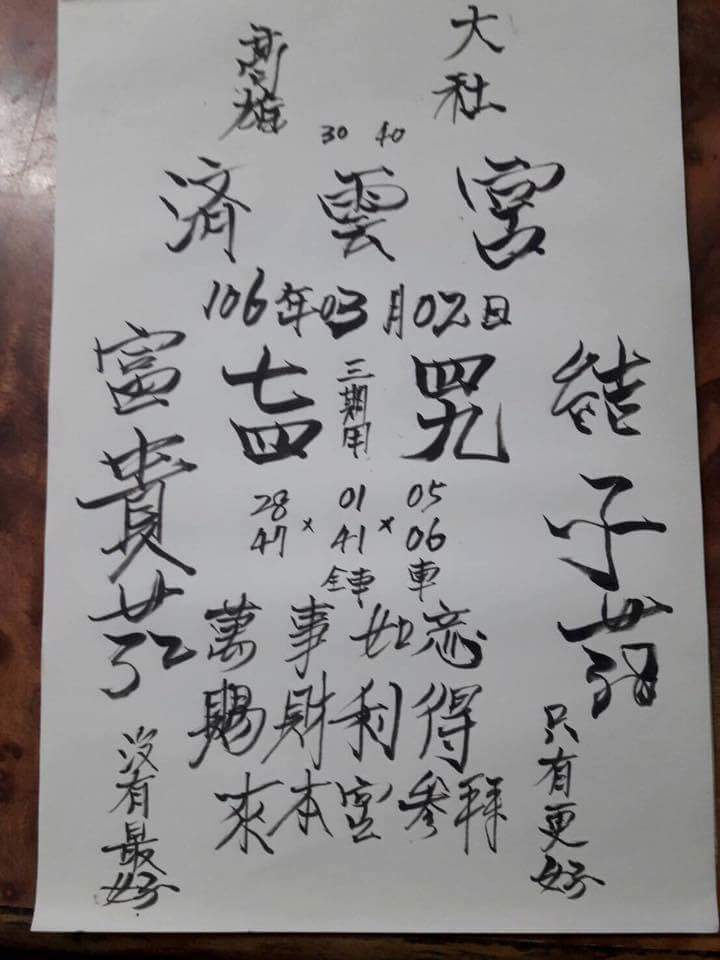 高雄
大社
30 40
済雲宮
106年03月02日
富貴
七四
三期用
四九
子
28 × 01 × 05
47 41 06
全車 車
萬事如意
賜財利得
來本宮參拜
沒有最好
只有更好